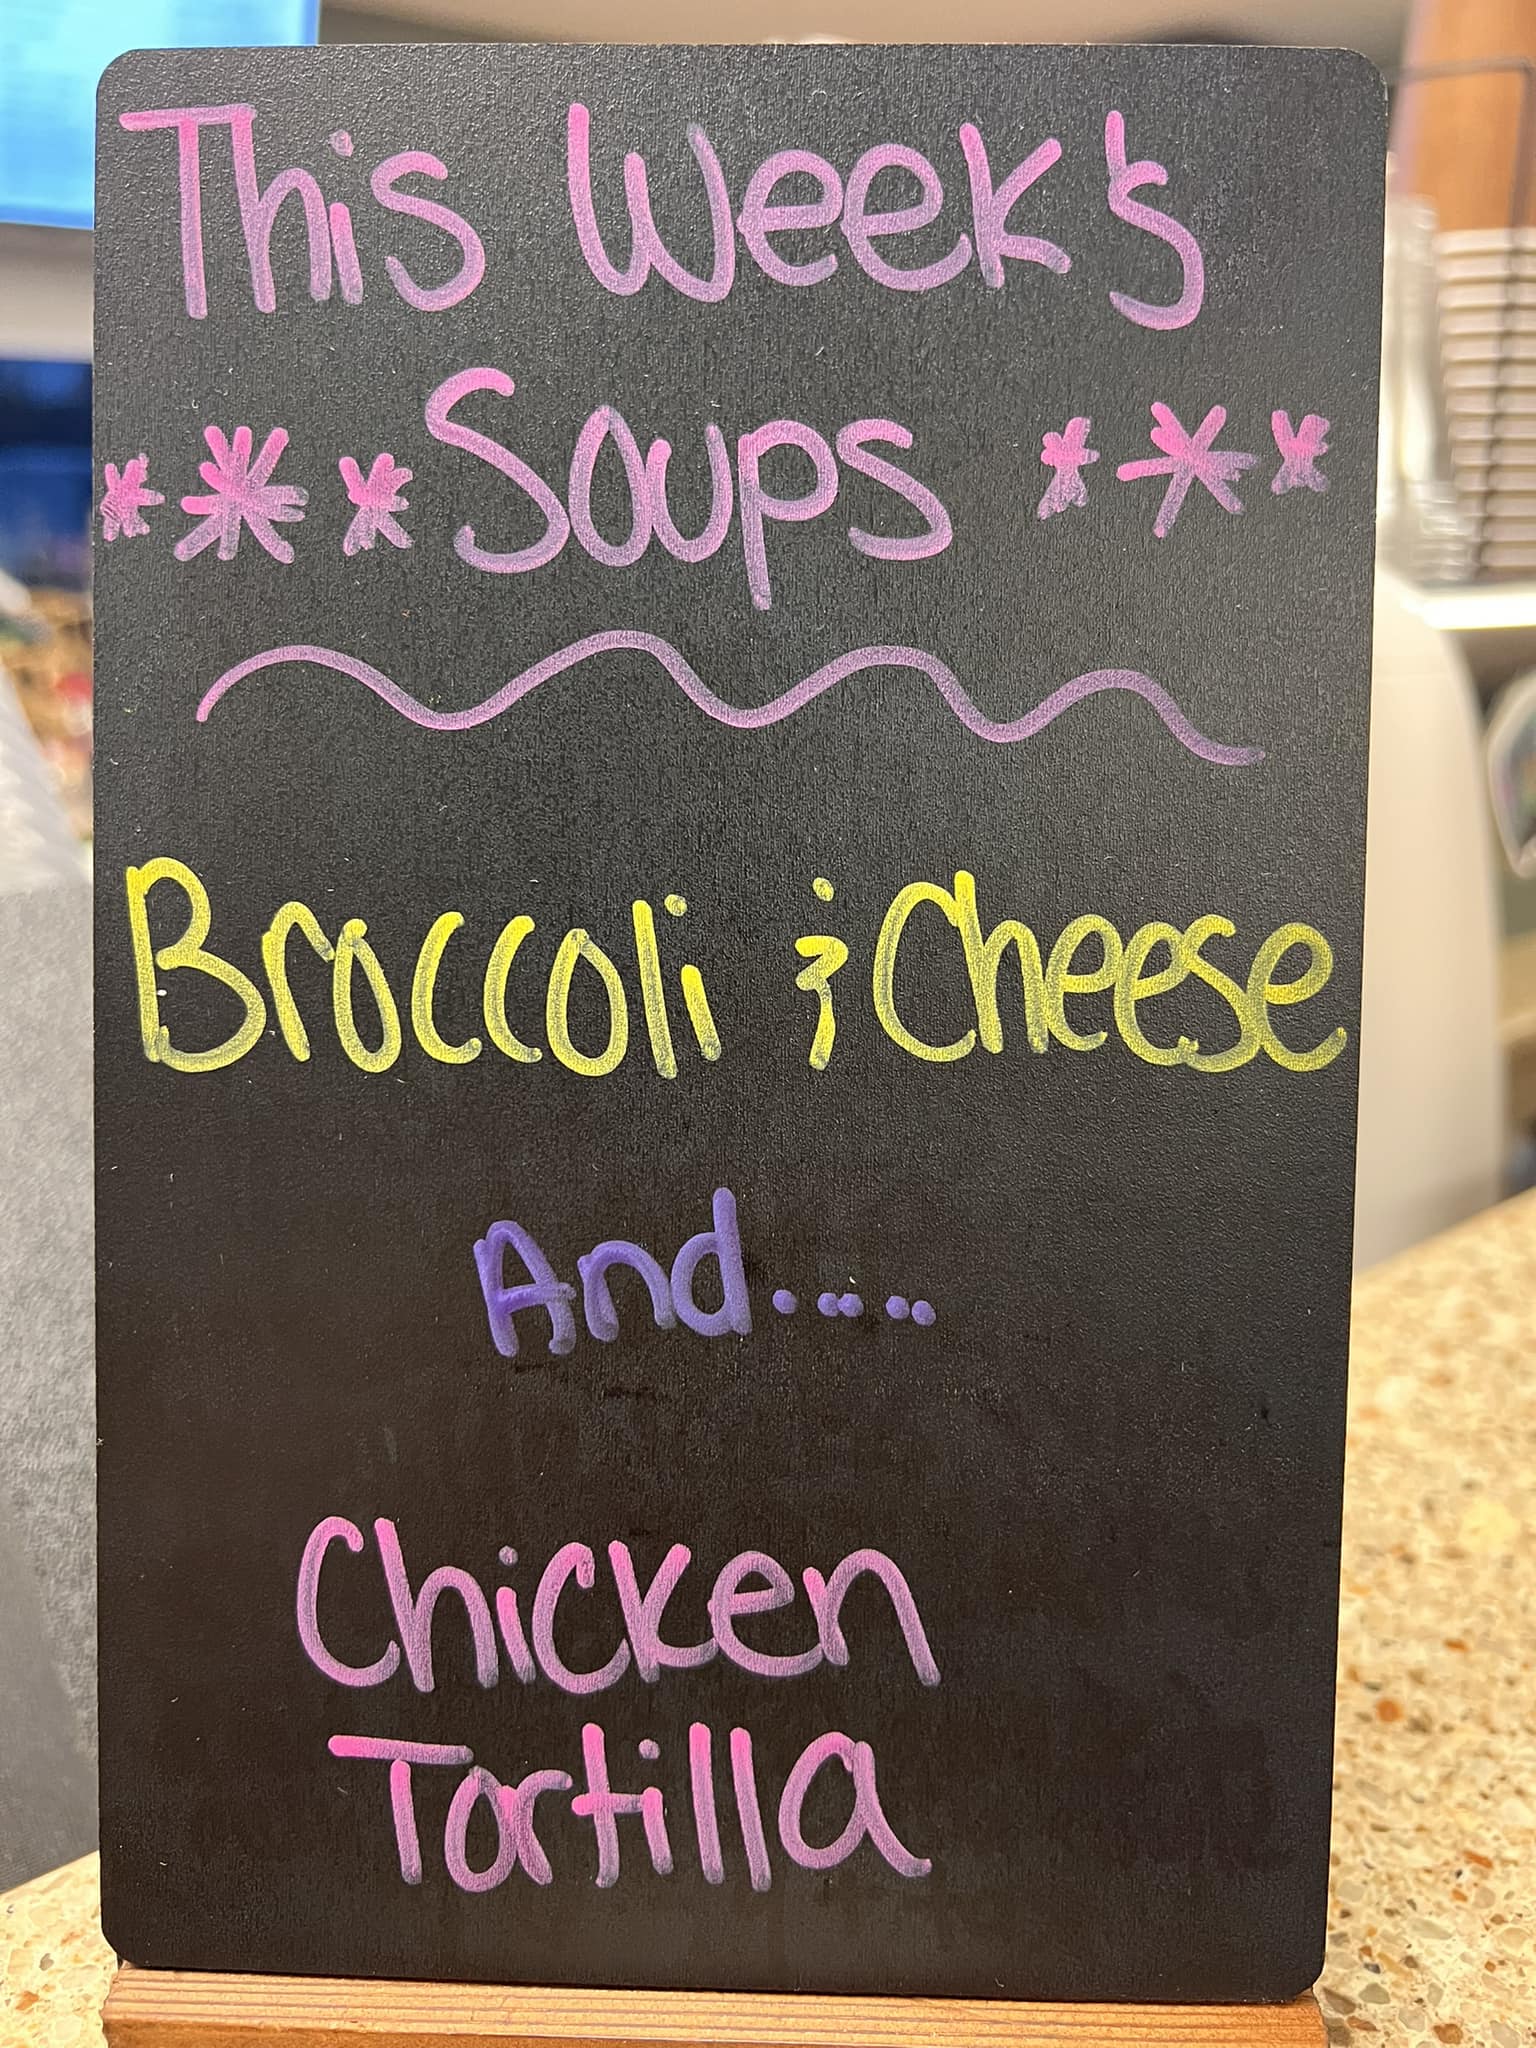 This Week's
*** Soups ***
Broccoli & Cheese
And.....
Chicken
Tortilla